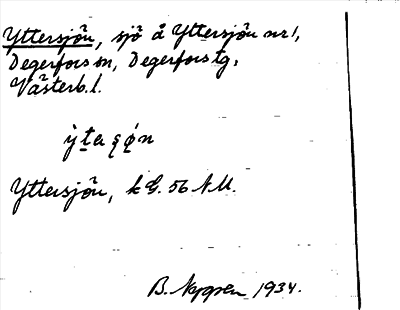 Yttersjön, sjö å Yttersjön nr 1,
Degerfors sn, Degerfors tg,
Västerb. l.
Yttersjön, k G. 56 N.U.
B. Nygren 1934.